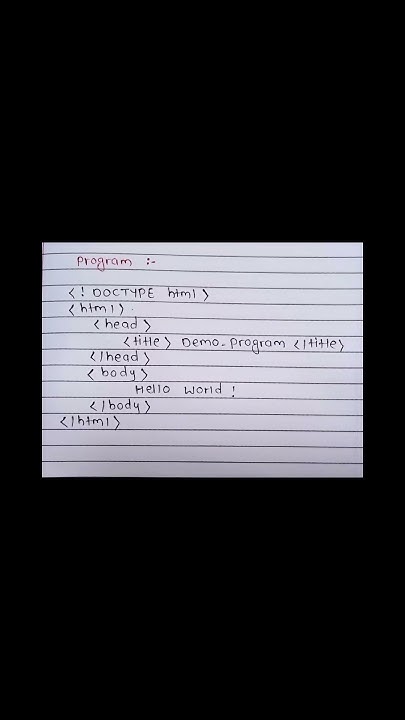 Program :-
<! DOCTYPE html>
<html>
<head>
<title> Demo-Program </title>
</head>
<body>
Hello World !
</body>
</html>